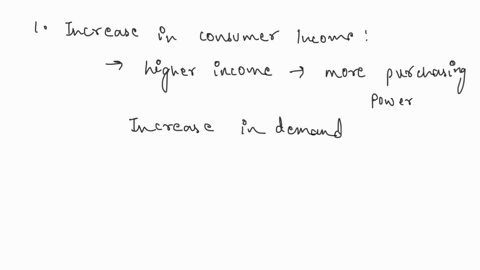 1. Increase in consumer Income:
→ higher income → more purchasing
power
Increase in demand